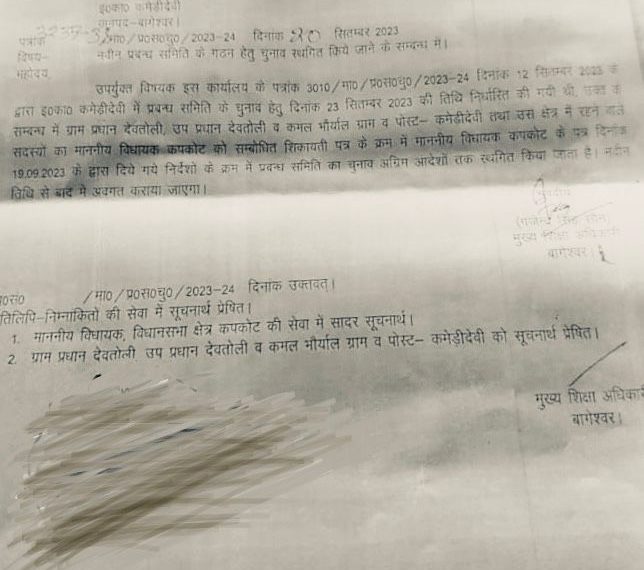 इ०का० कमेडीदेवी
जनपद–बागेश्वर।
पत्रांक /मा०/प्र०स०चु०/2023-24 दिनांक 20 सितम्बर 2023
विषय– नवीन प्रबन्ध समिति के गठन हेतु चुनाव स्थगित किये जाने के सम्बन्ध में।
महोदय,
उपर्युक्त विषयक इस कार्यालय के पत्रांक 3010/मा०/प्र०स०चु०/2023-24 दिनांक 12 सितम्बर 2023 के
द्वारा इ०का० कमेडीदेवी में प्रबन्ध समिति के चुनाव हेतु दिनांक 23 सितम्बर 2023 की तिथि निर्धारित की गयी थी, उक्त के
सम्बन्ध में ग्राम प्रधान देवतोली, उप प्रधान देवतोली व कमल भौर्याल ग्राम व पोस्ट– कमेडीदेवी तथा उस क्षेत्र में रहने वाले
सदस्यों का माननीय विधायक कपकोट को सम्बोधित शिकायती पत्र के क्रम में माननीय विधायक कपकोट के पत्र दिनांक
19.09.2023 के द्वारा दिये गये निर्देशों के क्रम में प्रबन्ध समिति का चुनाव अग्रिम आदेशों तक स्थगित किया जाता है। नवीन
तिथि से बाद में अवगत कराया जाएगा।
भवदीय
मुख्य शिक्षा अधिकारी
बागेश्वर।
/मा०/प्र०स०चु०/2023-24 दिनांक उक्तवत्।
तिलिपि–निम्नांकितों की सेवा में सूचनार्थ प्रेषित।
1. माननीय विधायक, विधानसभा क्षेत्र कपकोट की सेवा में सादर सूचनार्थ।
2. ग्राम प्रधान देवतोली उप प्रधान देवतोली व कमल भौर्याल ग्राम व पोस्ट– कमेड़ीदेवी को सूचनार्थ प्रेषित।
मुख्य शिक्षा अधिकार
बागेश्वर।